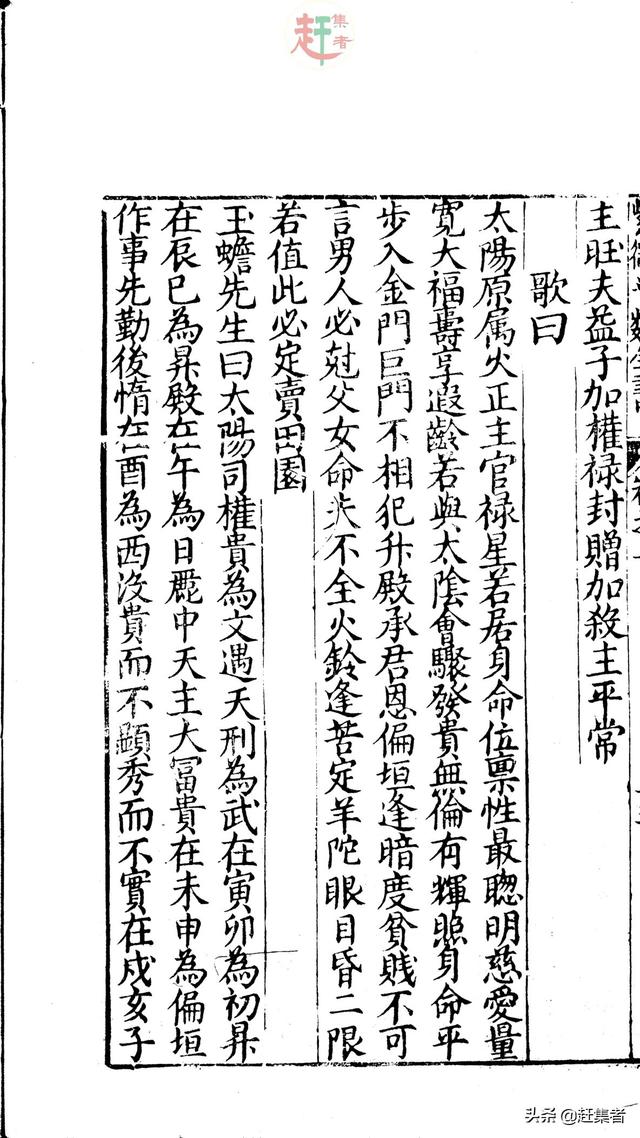 赶集者
主旺夫益子加權禄封贈加殺主平常
歌曰
太陽原属火正主官禄星若居身命位禀性最聰明慈愛量
寬大福壽享遐齡若與太陰會驟發貴無倫有輝照身命平
步入金門巨門不相犯升殿承君恩偏垣逢暗度貧賤不可
言男人必尅父女命夫不全火鈴逢苦定羊陀眼目昏二限
若值此必定賣田園
玉蟾先生曰太陽司權貴為文遇天刑為武在寅卯為初昇
在辰巳為昇殿在午為日麗中天主大冨貴在未申為偏垣
作事先勤後惰在酉為西没貴而不顯秀而不實在戍亥子
头条 @赶集者